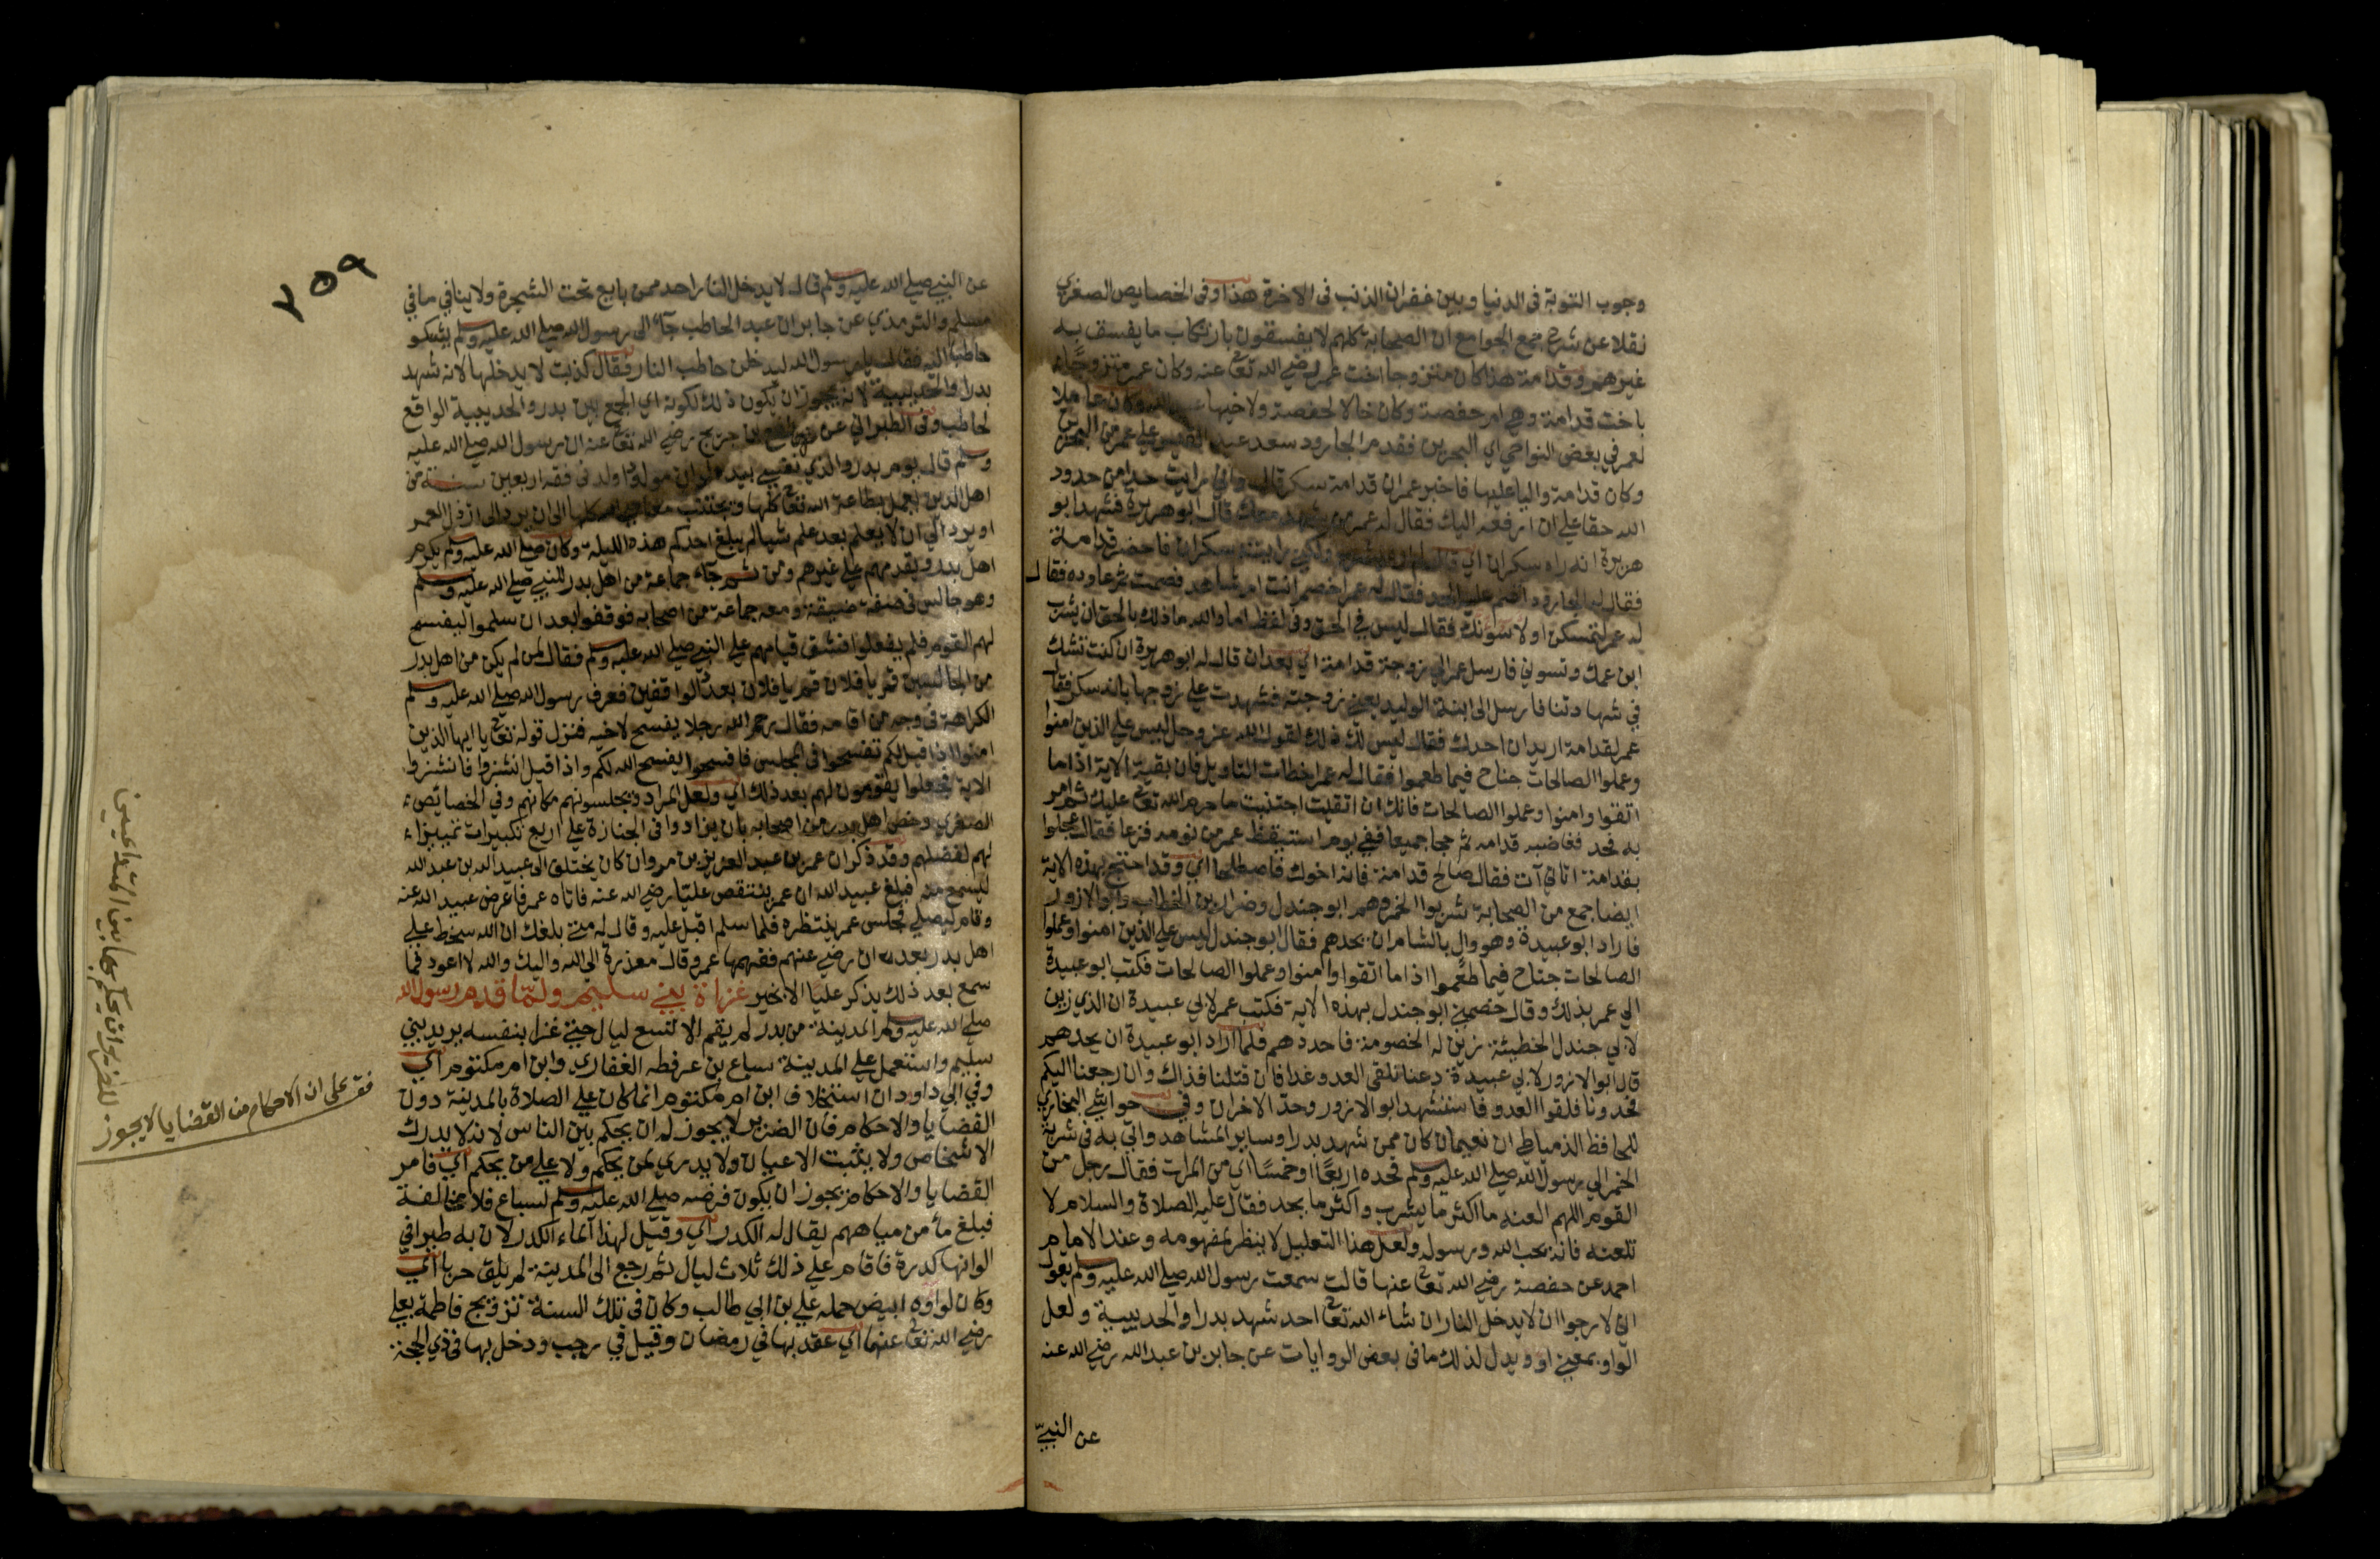 وجوب التوبة فى الدنيا وبين غفران الذنب فى الاخرة هذا وفى الخصايص الصغري
نقلا عن شرح جمع الجوامع ان الصحابة كلهم لا يفسقون بارتكاب ما يفسق به
غيرهم وقدامة هذا كان متزوجا اخت عمر رضي الله تعا عنه وكان عمر متزوجا
باخت قدامة وهي ام حفصة وكان خالا لحفصة ولاخيها عبد الله وكان عاملا
لعمر في بعض النواحي اي البحرين فقدم الجارود سعد عبد القيس علي عمر من البحرين
وكان قدامة واليا عليها فاخبر عمر ان قدامة سكر قال واني رايت حدا من حدود
الله حقا علي ان ارفعه اليك فقال له عمر من يشهد معك قال ابو هريرة فشهد ابو
هريرة انه راه سكران اي قال لم اره يشرب ولكني رايته سكران فاحضر قدامة
فقال له الجارود اقم عليه الحد فقال له عمر اخصم انت ام شاهد فصمت ثم عاوده فقال
له عمر لتمسكن او لاسونك فقال ليس في الحق وفى لفظ اما والله ما ذلك بالحق ان يشرب
ابن عمك وتسوني فارسل عمر الي زوجة قدامة اي بعد ان قال له ابو هريرة ان كنت تشك
في شهادتنا فارسل الى ابنة الوليد يعني زوجته فشهدت علي زوجها بانه سكر فقال
عمر لقدامة اريد ان احدك فقال ليس لك ذلك لقول الله عز وجل ليس علي الذين امنوا
وعملوا الصالحات جناح فيما طعموا فقال له عمر اخطات التاويل فان بقية الاية اذا ما
اتقوا وامنوا وعملوا الصالحات فانك ان اتقيت اجتنبت ما حرم الله تعا عليك ثم امر
به فحد فغاضبه قدامه ثم حجا جميعا ففي يوم استيقظ عمر من نومه فزعا فقال عجلوا
بقدامة اتاني آت فقال صالح قدامة فانه اخوك فاصطلحا اي وقد احتج بهذه الاية
ايضا جمع من الصحابة شربوا الخمر وهم ابو جندل وضرار بن الخطاب وابو الازور
فاراد ابو عبيدة وهو وال بالشام ان يحدهم فقال ابو جندل ليس علي الذين امنوا وعملوا
الصالحات جناح فيما طعموا اذا ما اتقوا وامنوا وعملوا الصالحات فكتب ابو عبيدة
الي عمر بذلك وقال خصمني ابو جندل بهذه الاية فكتب عمر لابي عبيدة ان الذي زين
لابي جندل الخطيئة زين له الخصومة فاحددهم فلما اراد ابو عبيدة ان يحدهم
قال ابو الازور لابي عبيدة دعنا نلقي العدو غدا فان قتلنا فذاك وان رجعنا اليكم
فحدونا فلقوا العدو فاستشهد ابو الازور وحد الاخران وفي حواشي البخاري
للحافظ الدمياطي ان نعيمان كان ممن شهد بدرا وساير المشاهد واتي به فى شربة
الخمر الي رسول الله صلي الله عليه وسلم فحده اربعا او خمسا اي من المرات فقال رجل من
القوم اللهم العنه ما اكثر ما يشرب واكثر ما يحد فقال عليه الصلاة والسلام لا
تلعنه فانه يحب الله ورسوله ولعل هذا التعليل لا ينظر لمفهومه وعند الامام
احمد عن حفصة رضي الله تعا عنها قالت سمعت رسول الله صلي الله عليه وسلم يقول
اني لارجوا ان لا يدخل النار ان شاء الله تعا احد شهد بدرا والحديبية ولعل
الواو بمعني او ويدل لذلك ما فى بعض الروايات عن جابر بن عبد الله رضي الله عنه
عن النبيّ
٧٥٩
عن النبي صلي الله عليه وسلم قال لا يدخل النار احد ممن بايع تحت الشجرة ولا ينافي ما في
مسلم والترمذي عن جابر ان عبد الحاطب جاء الى رسول الله صلي الله عليه وسلم يشكو
حاطبا اليه فقال يا رسول الله ليدخلن حاطب النار فقال كذبت لا يدخلها لانه شهد
بدرا والحديبية لانه يجوز ان يكون ذلك لكونه اي الجمع بين بدر والحديبية الواقع
لحاطب وفى الطبراني عن رافع بن خديج رضي الله تعا عنه ان رسول الله صلي الله عليه
وسلم قال يوم بدر والذي نفسي بيده لو ان مولودا ولد في فقه اربعين سنة من
اهل الدين يعمل بطاعة الله تعا كلها ويجتنب معاصي الله كلها الى ان يرد الى ارذل العمر
او يرد الي ان لا يعلم بعد علم شيا لم يبلغ احدكم هذه الليلة وكان صلي الله عليه وسلم يكرم
اهل بدر ويقدمهم علي غيرهم ومن ثم جاء جماعة من اهل بدر للنبي صلي الله عليه وسلم
وهو جالس فى صفة ضيقة ومعه جماعة من اصحابه فوقفوا بعد ان سلموا ليفسح
لهم القوم فلم يفعلوا فشق قيامهم علي النبي صلي الله عليه وسلم فقال لمن لم يكن من اهل بدر
من الجالسين قم يا فلان قم يا فلان بعدد الواقفين فعرف رسول الله صلي الله عليه وسلم
الكراهة فى وجه من اقامه فقال رحم الله رجلا يفسح لاخيه فنزل قوله تعا يا ايها الذين
امنوا اذا قيل لكم تفسحوا فى المجلس فافسحوا يفسح الله لكم واذا قيل انشزوا فانشزوا
الاية فجعلوا يقومون لهم بعد ذلك اي ولعل المراد ويجلسونهم مكانهم وفي الخصائص
الصغري وخص اهل بدر من اصحابه بان يزادوا فى الجنازة علي اربع تكبيرات تمييزا
لهم لفضلهم وقد ذكر ان عمر بن عبد العزيز بن مروان كان يختلف الى عبيد الله بن عبد الله
ليسمع منه فبلغ عبيد الله ان عمر يتنقص عليا رضي الله عنه فاتاه عمر فاعرض عبيد الله عنه
وقام ليصلي فجلس عمر ينتظره فلما سلم اقبل عليه وقال له متي بلغك ان الله سخط علي
اهل بدر بعد ان رضي عنهم ففهمها عمر وقال معذرة الى الله واليك والله لا اعود فما
سمع بعد ذلك يذكر عليا الا بخير غزاة بني سليم ولما قدم رسول الله
صلي الله عليه وسلم المدينة من بدر لم يقم الا تسع ليال حتي غزا بنفسه يريد بني
سليم واستعمل علي المدينة سباع بن عرفطه الغفاري وابن ام مكتوم اي
وفي ابي داود ان استخلاف ابن ام مكتوم انما كان علي الصلاة بالمدينة دون
القضايا والاحكام فان الضرير لا يجوز له ان يحكم بين الناس لانه لا يدرك
الاشخاص ولا يثبت الاعيان ولا يدري لمن يحكم ولا علي من يحكم اي فامر
القضايا والاحكام يجوز ان يكون فرضه صلي الله عليه وسلم لسباع فلا مخالفة
فبلغ ما من مياههم يقال له الكدر اي وقيل لهذا الماء الكدر لان به طيرا في
الوانها كدرة فاقام علي ذلك ثلاث ليال ثم رجع الى المدينة لم يلق حربا اي
وكان لواوه ابيض حمله علي بن ابي طالب وكان فى تلك السنة تزويج فاطمة بعلي
رضي الله تعا عنهما اي عقد بها في رمضان وقيل في رجب ودخل بها في ذي الحجة
للضرير ان يحكم بها بين المتداعيين
فقد علم ان الاحكام من القضايا لا يجوز